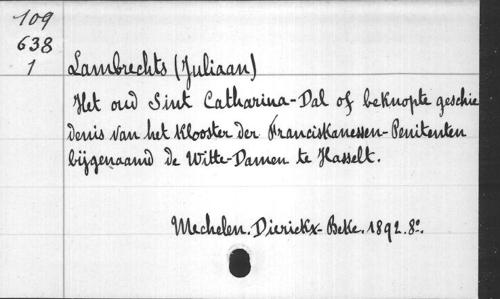 109
638
1
Lambrechts (Juliaan)
Het oud Sint Catharina-Dal of beknopte geschie
denis van het Klooster der Franciskanessen-Penitenten
bijgenaamd de Witte-Damen te Hasselt.
Mechelen. Dierickx-Beke. 1892. 8º.